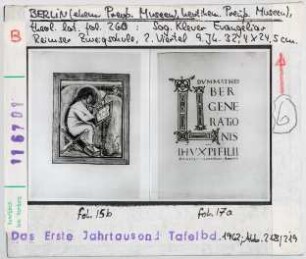 BERLIN (ehem. Preuß. Museen),
theol. lat. fol. 260 : Sog. Klever Evangeliar
Reimser Zweigschule, 2. Viertel 9. Jh. 32,4 x 24,5 cm.
B
118701
6
BER
GENE
RATIO
NIS
IHUXPIFILII
fol. 15b fol. 17a
Das Erste Jahrtausend Tafelbd. 1962, Abb. 218/219